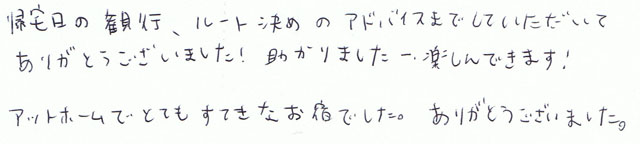 帰宅日の観行、ルート決めのアドバイスまでしていただいて
ありがとうございました! 助かりましたー。楽しんできます!
アットホームでとてもすてきなお宿でした。ありがとうございました。